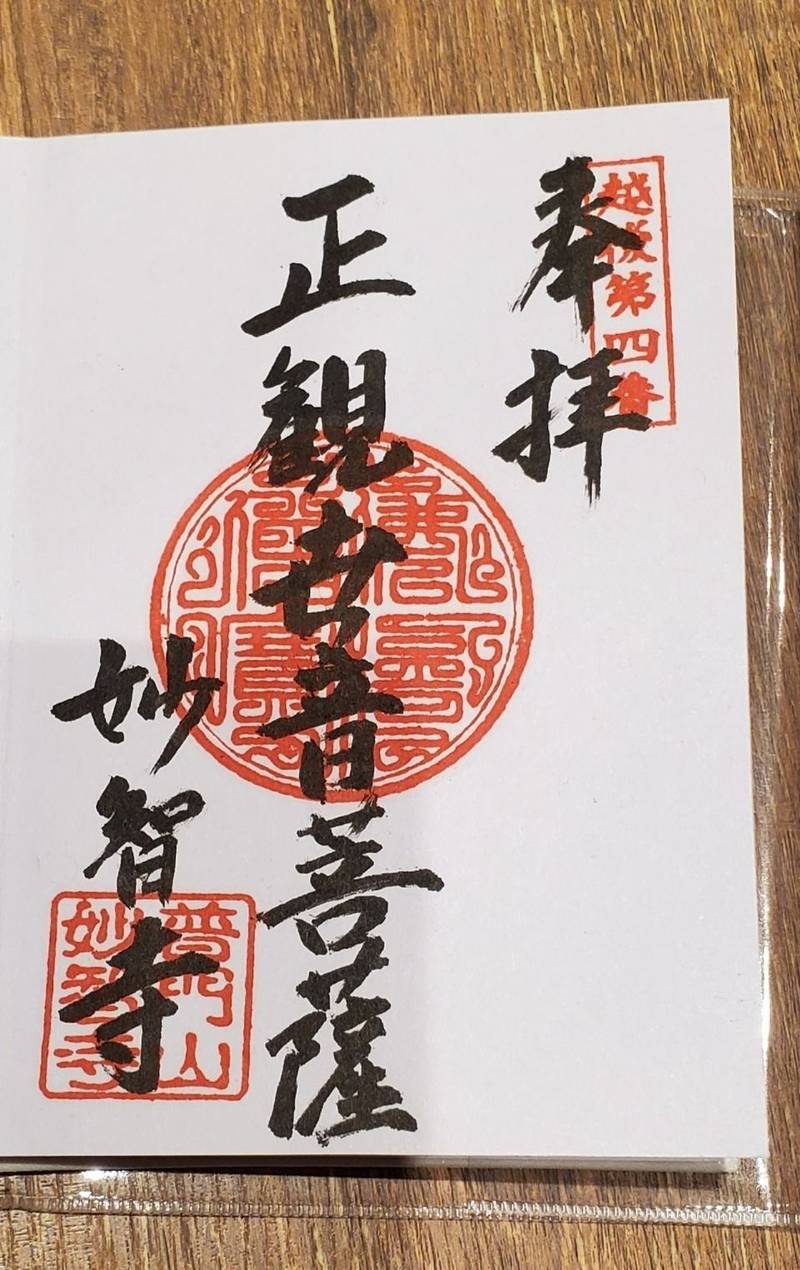 越後第四番
奉拝
正観世音菩薩
妙智寺
普門山
妙智寺